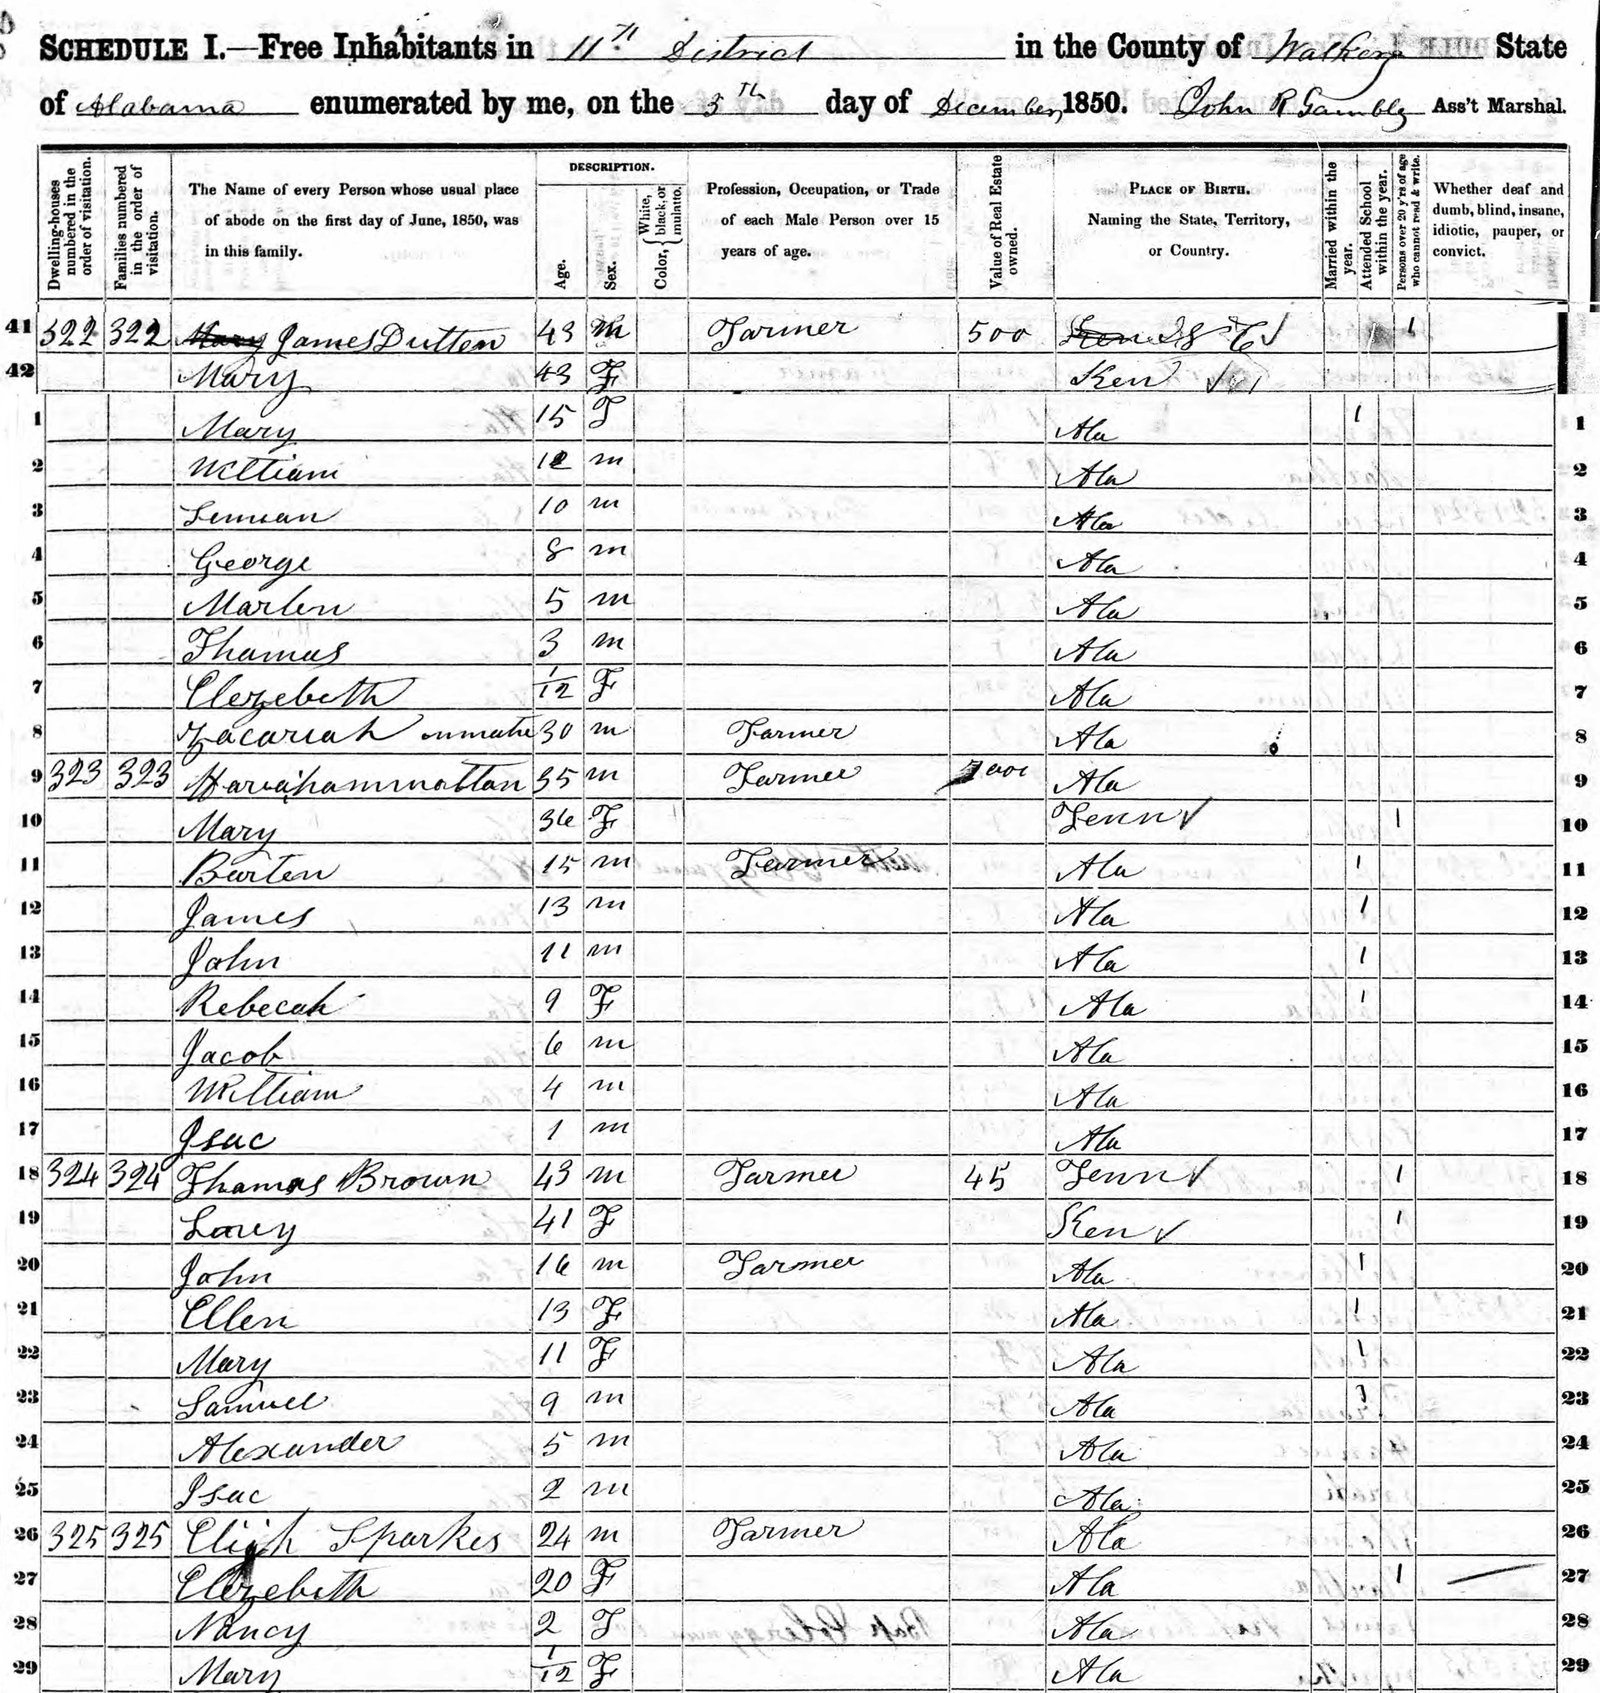 SCHEDULE I.—Free Inhabitants in 11th District in the County of Walker State
of Alabama enumerated by me, on the 5th day of December, 1850. John R Gamble Ass't Marshal.
Dwelling-houses numbered in the order of visitation.
Families numbered in the order of visitation.
The Name of every Person whose usual place of abode on the first day of June, 1850, was in this family.
DESCRIPTION.
Age.
Sex.
Color, { White, black, or mulatto.
Profession, Occupation, or Trade of each Male Person over 15 years of age.
Value of Real Estate owned.
PLACE OF BIRTH. Naming the State, Territory, or Country.
Married within the year.
Attended School within the year.
Persons over 20 y'rs of age who cannot read & write.
Whether deaf and dumb, blind, insane, idiotic, pauper, or convict.
41 322 322 Mary James Dutton 43 m Farmer 500 S C 1
42 Mary 43 F Ken
1 Mary 15 F Ala 1 1
2 William 12 m Ala 2
3 10 m Ala 3
4 George 8 m Ala 4
5 Marlen 5 m Ala 5
6 Thomas 3 m Ala 6
7 Elezebeth 1/12 F Ala 7
8 Zacariah inmate 30 m Farmer Ala 8
9 323 323 35 m Farmer Ala 9
10 Mary 36 F Tenn 1 10
11 Barten 15 m Farmer Ala 1 11
12 James 13 m Ala 1 12
13 John 11 m Ala 1 13
14 Rebecah 9 F Ala 1 14
15 Jacob 6 m Ala 15
16 William 4 m Ala 16
17 Isac 1 m Ala 17
18 324 324 Thomas Brown 43 m Farmer 45 Tenn 1 18
19 41 F Ken 1 19
20 John 16 m Farmer Ala 1 20
21 Ellen 13 F Ala 1 21
22 Mary 11 F Ala 1 22
23 Samuel 9 m Ala 1 23
24 Alexander 5 m Ala 24
25 Isac 2 m Ala 25
26 325 325 Eligh Sparkes 24 m Farmer Ala 26
27 Elezebeth 20 F Ala 1 27
28 Nancy 2 F Ala 28
29 Mary 1/12 F Ala 29